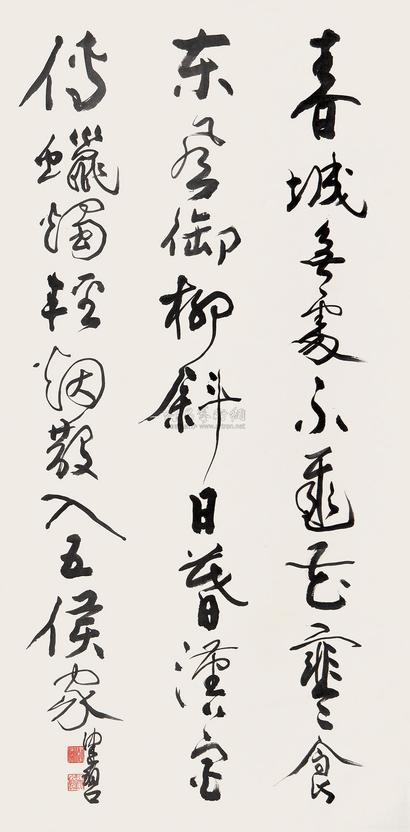 春城無處不飛花寒食
東風御柳斜日暮漢宮
傳蠟燭輕烟散入五侯家